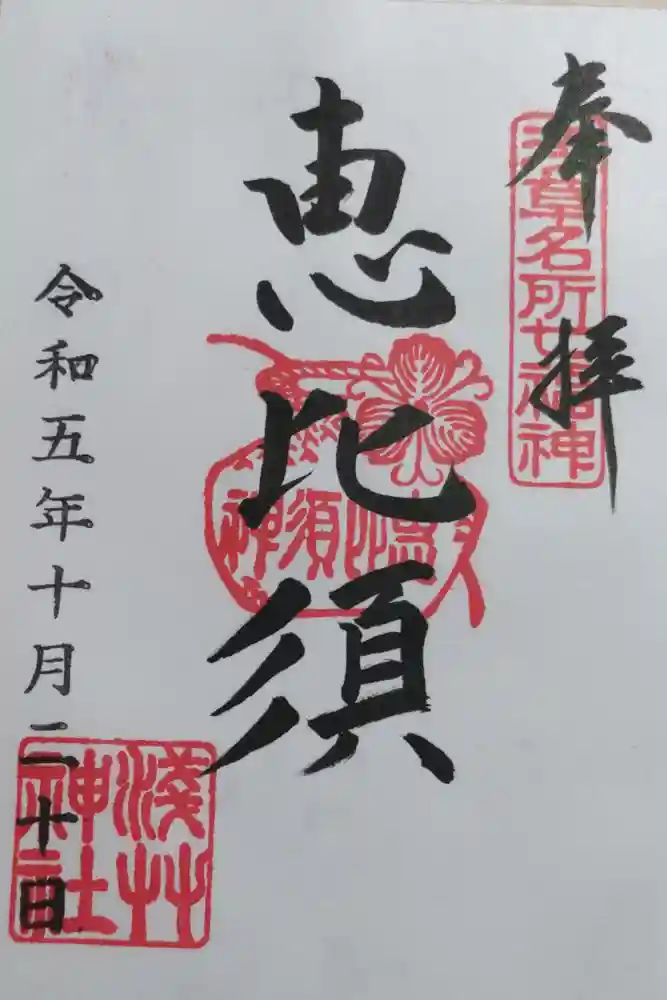 奉拝
浅草名所七福神
恵比須
恵比須神
令和五年十月二十日
淺草
神社